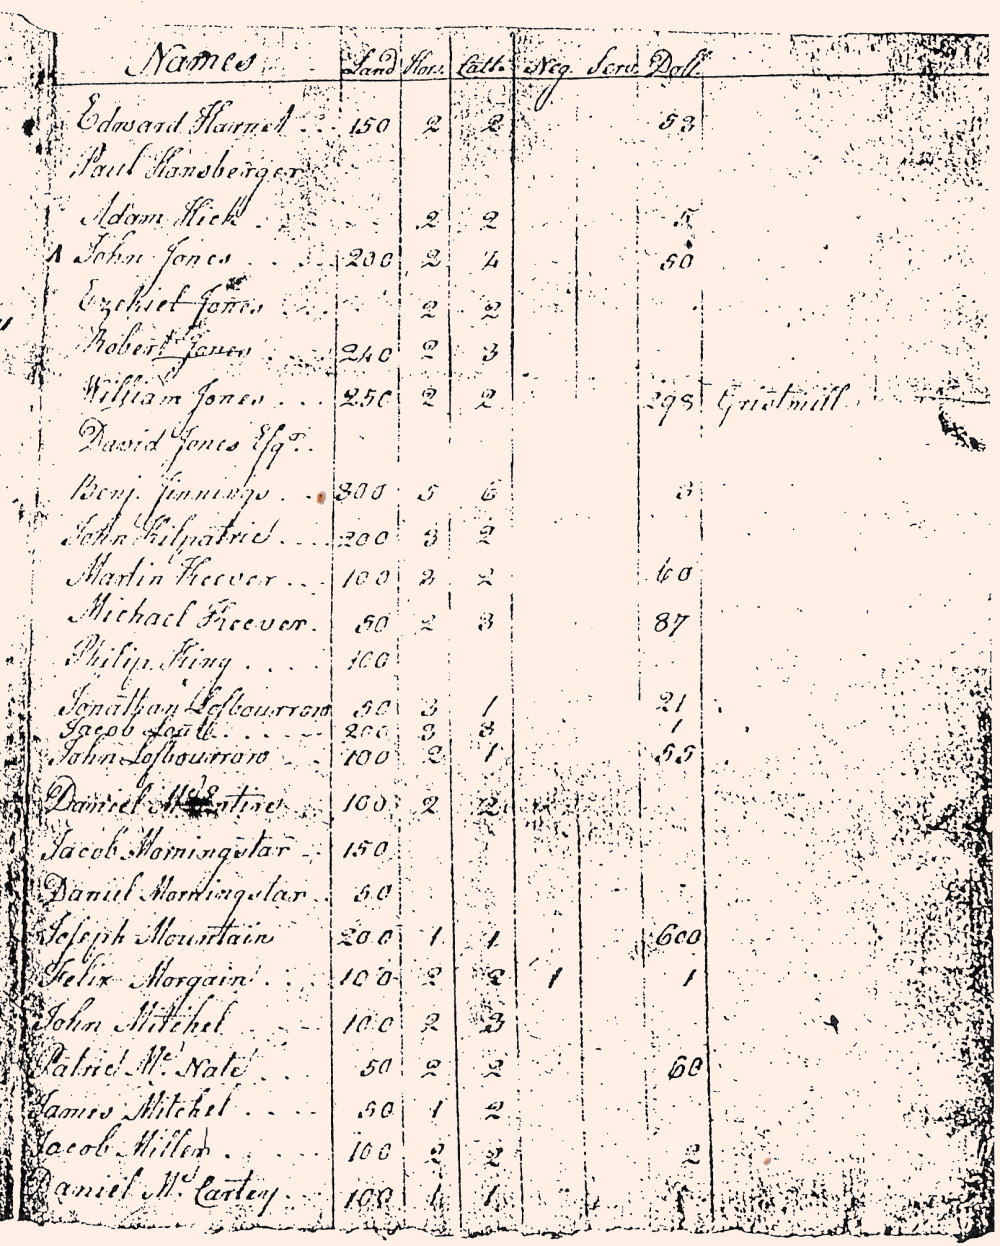 Names Land Hors. Catt. Neg. Serv. Doll.
Edward Harnet 150 2 2 53
Paul Hansberger
Adam Hick 2 2 5
John Jones 200 2 4 50
Ezekiel Jones 2 2
Robert Jones 240 2 3
William Jones 250 2 2 298 Gristmill
David Jones Esqr.
Benj. Jinnings 300 5 6 3
John Kilpatrick 200 3 2
Martin Keever 100 2 2 60
Michael Keever 50 2 3 87
Philip King 100
Jonathan Lofbourrow 50 3 1 21
Jacob 200 3 3 1
John Lofbourrow 100 2 1 55
Daniel McEntire 100 2 2
Jacob Morningstar 150
Daniel Morningstar 50
Joseph Mountain 200 1 1 600
Felix Morgain 100 2 2 1 1
John Mitchel 100 2 3
Patrick Mc Nate 50 2 2 60
James Mitchel 50 1 2
Jacob Miller 100 2 2 2
Daniel Mc Cartey 100 1 1 1